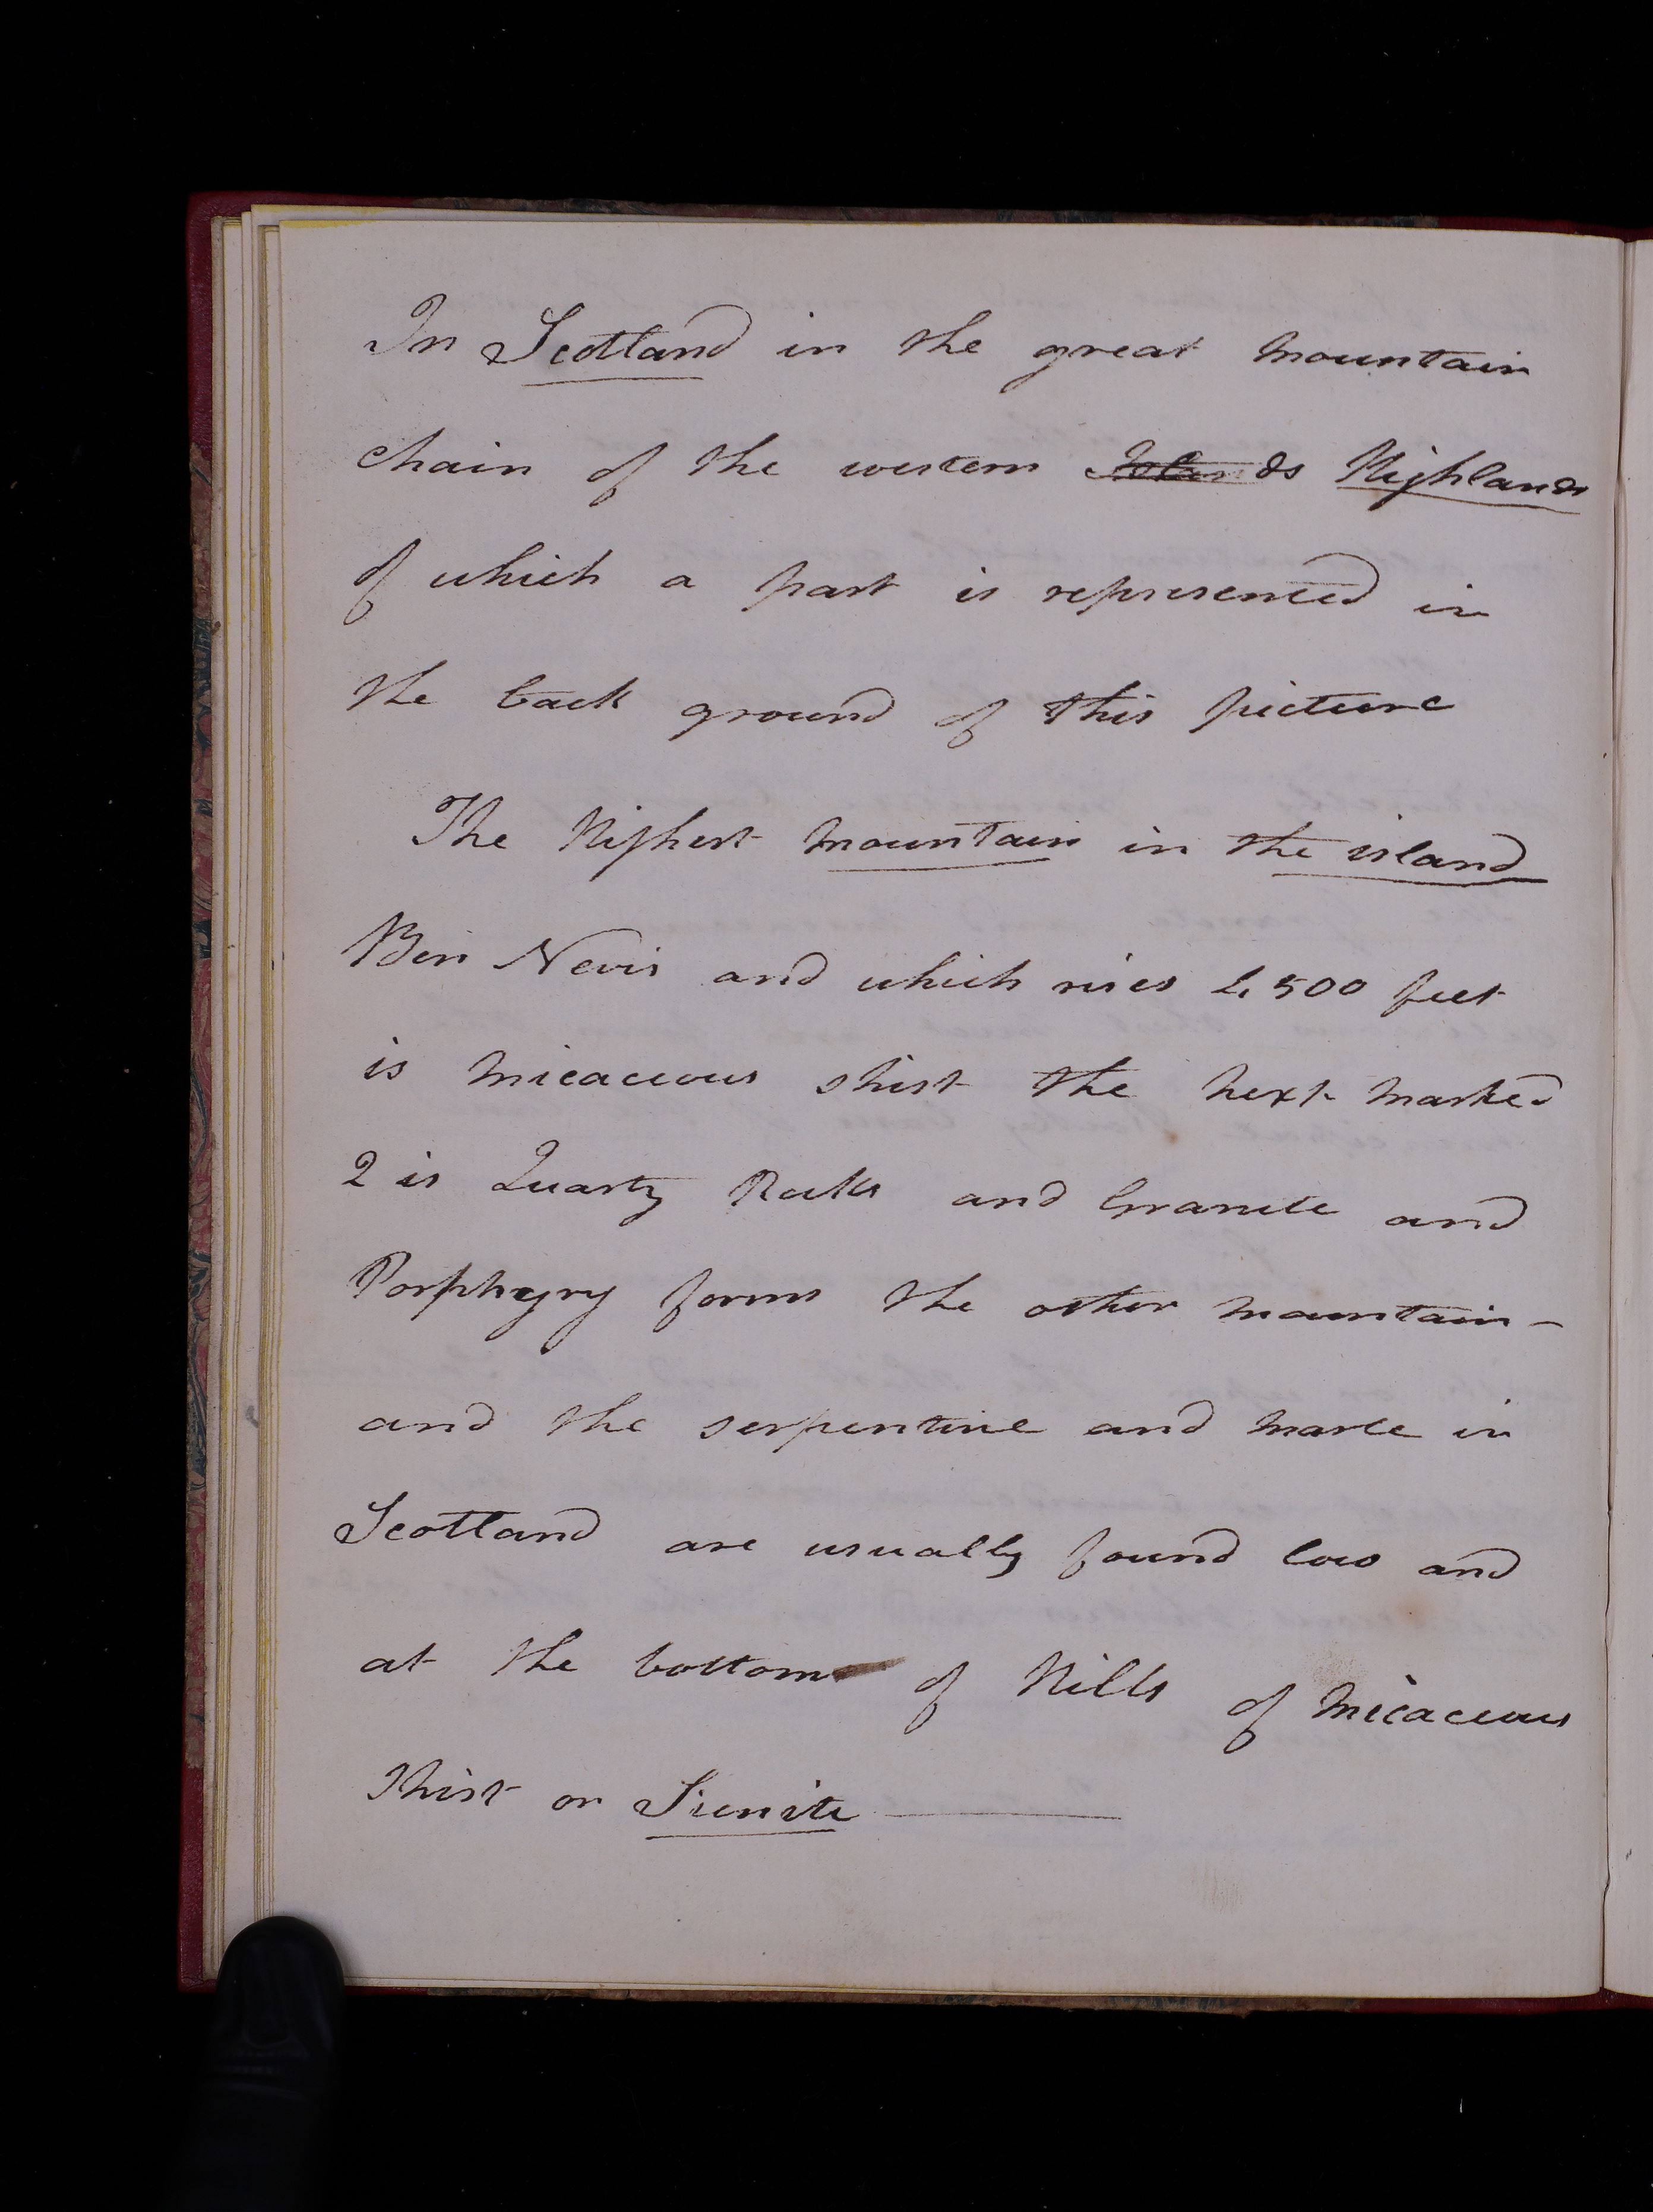 In Scotland in the great mountain
chain of the western Islands Highlands
of which a part is represented in
the back ground of this picture
The Highest mountain in the island
Ben Nevis and which rises 4,500 feet
is micaceous shist the next marked
2 is Quartz Rocks and Granite and
Porphyry forms the other mountain -
and the serpentine and marle in
Scotland are usually found low and
at the bottom of Hills of micaceous
Shist or Sienite